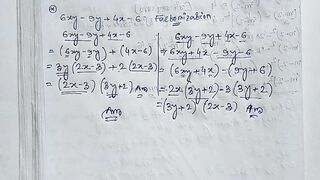 6xy-9y+4x-6 Factomization
6xy-9y+4x-6
=(6xy-9y)+(4x-6)
=3y(2x-3)+2(2x-3)
=(2x-3)(3y+2) Ans
Ans
6xy-9y+4x-6
=6xy+4x-9y-6
=(6xy+4x)-(9y+6)
=2x(3y+2)-3(3y+2)
=(3y+2)(2x-3) Ans